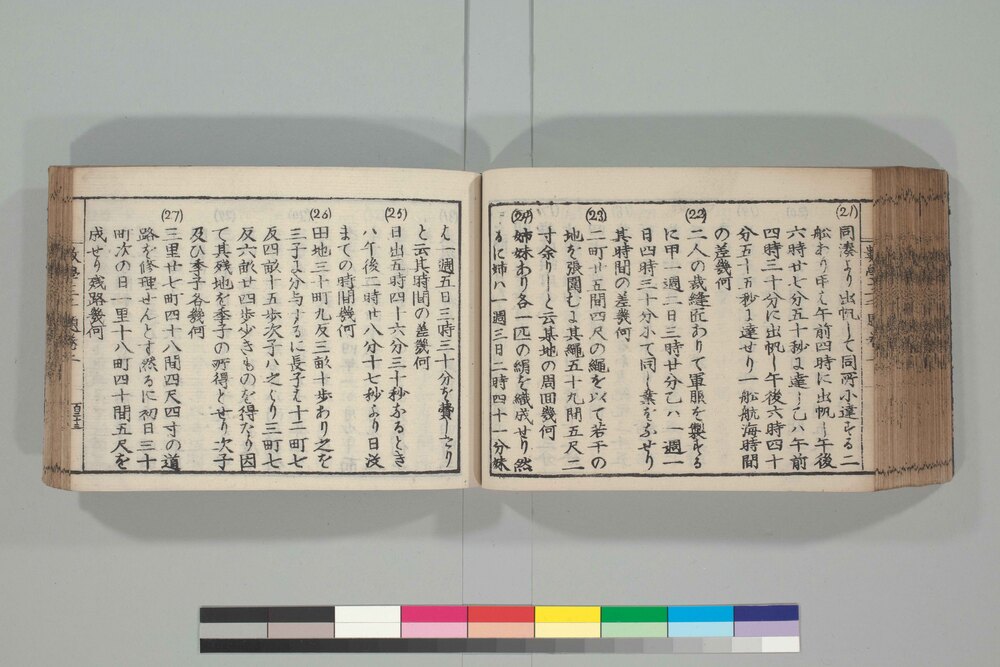 (21)
同湊より出帆して同所に達する二
舩あり甲ハ午前四時に出帆し午後
六時廿七分五十秒に達し乙ハ午前
四時三十分に出帆し午後六時四十
分五十五秒に達せり一舩航海時間
の差幾何
(22)
二人の裁縫匠ありて軍服を製する
に甲一週二日三時廿分乙ハ一週一
日四時三十分にて同し業をなせり
其時間の差幾何
(23)
二町廿五間四尺の繩を以て若干の
地を張圍むに其繩五十九間五尺二
寸余りしと云某地の周囲幾何
(24)
姉妹あり各一匹の絹を織成せり然
るに姉ハ一週三日二時四十一分妹
は一週五日三時三十分を費したり
と云其時間の差幾何
(25)
日出五時四十六分三十秒なるとき
ハ午後二時廿八分十七秒より日没
まての時間幾何
(26)
田地三十町九反三畝十歩あり之を
三子に分与するに長子は十二町七
反四畝十五歩次子ハ之より三町七
反六畝廿四歩少きものを得たり因
て其残地を季子の所得とせり次子
及ひ季子各幾何
(27)
三里廿七町四十八間四尺四寸の道
路を修理せんとす然るに初日三十
町次の日一里十八町四十間五尺を
成せり残路幾何